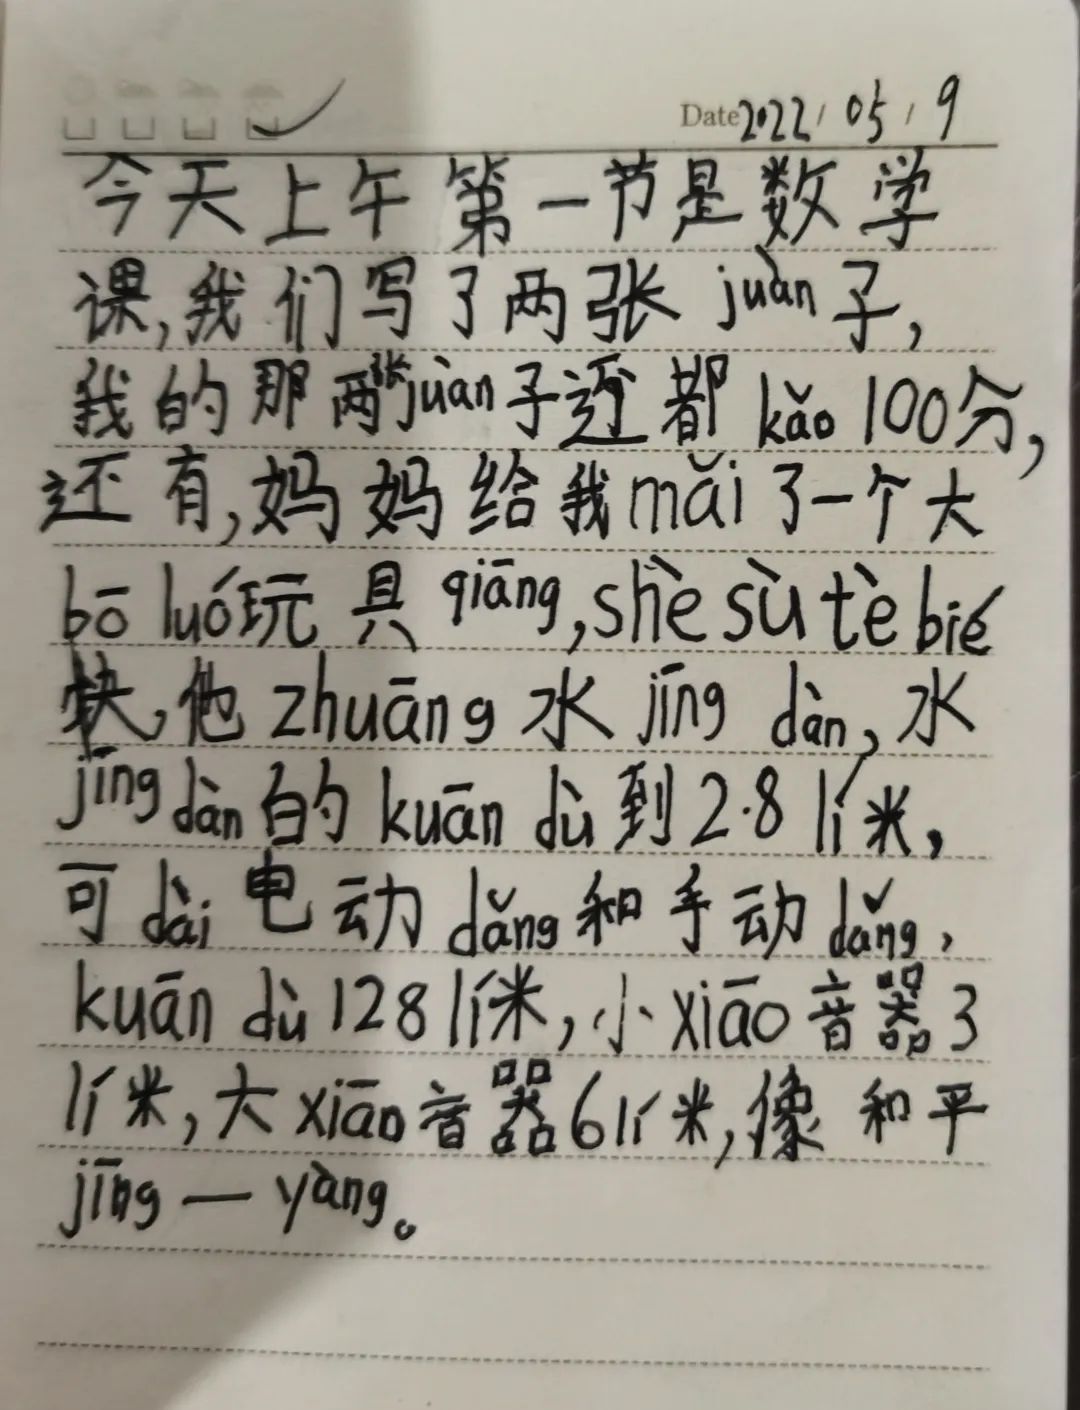 Date 2022 / 05 / 9
今天上午第一节是数学
课,我们写了两张juàn子,
我的那两张juàn子还都kǎo100分,
还有,妈妈给我mǎi了一个大
bō luó玩具qiāng,shè sù tè bié
快,他zhuāng水jīng dàn,水
jīng dàn的kuān dù到2.8lí米,
可dài电动dǎng和手动dǎng,
kuān dù128lí米,小xiāo音器3
lí米,大xiāo音器6lí米,像和平
jīng一yàng。